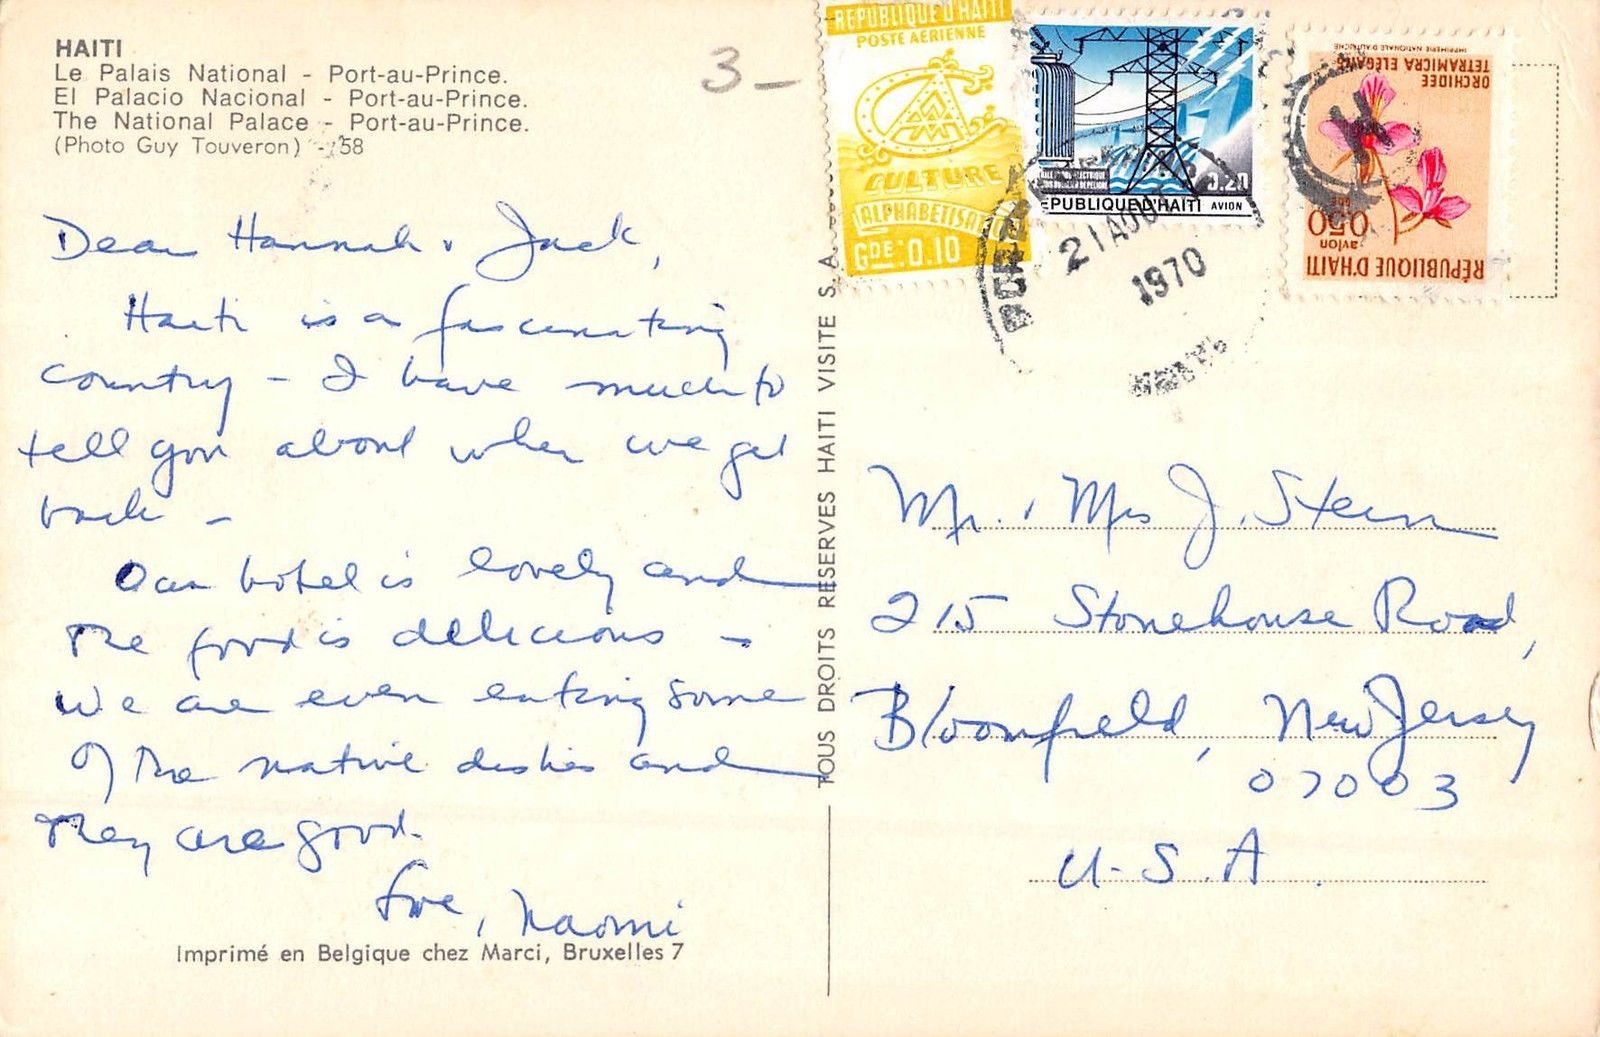 HAITI
Le Palais National - Port-au-Prince.
El Palacio Nacional - Port-au-Prince.
The National Palace - Port-au-Prince.
(Photo Guy Touveron) - 58
3 -
Dear Hannah & Jack,
Haiti is a fascinating
country - I have much to
tell you about when we get
back -
Our hotel is lovely and
the food is delicious -
we are even eating some
of the native dishes and
they are good.
Love, Naomi
Imprimé en Belgique chez Marci, Bruxelles 7
TOUS DROITS RESERVES HAITI VISITE S. A.
REPUBLIQUE D'HAITI
POSTE AERIENNE
CULTURE
ALPHABETISAT
GDE:0.10
0.20
EPUBLIQUE D'HAITI AVION
21 AOUT
1970
RÉPUBLIQUE D'HAITI
avion
0,50
GDE
ORCHIDÉE
TETRAMICRA ELEGANS
IMPRIMERIE NATIONALE D'AUTRICHE
Mr. & Mrs J. Stern
215 Stonehouse Road,
Bloomfield, New Jersey
07003
U.S.A.